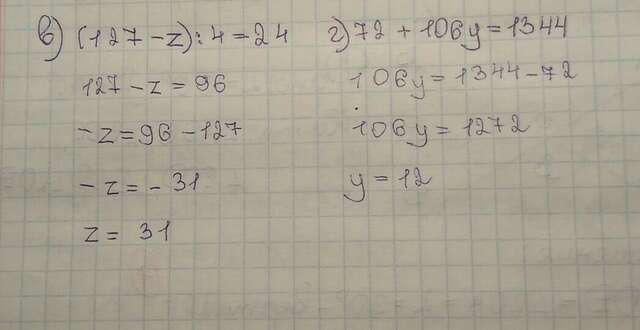 в) (127 - z) : 4 = 24
127 - z = 96
- z = 96 - 127
- z = - 31
z = 31
г) 72 + 106y = 1344
106y = 1344 - 72
106y = 1272
y = 12